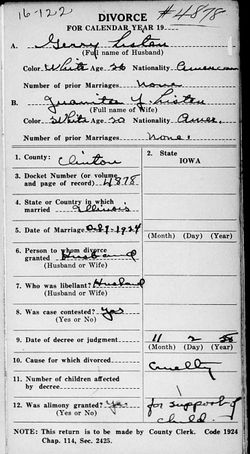 16-122 #4878
DIVORCE
FOR CALENDAR YEAR 19
A. Gerry Liston
(Full name of Husband)
Color White Age 26 Nationality American
Number of prior Marriages None.
B. Juanita J. Liston
(Full name of Wife)
Color White Age 20 Nationality Amer.
Number of prior Marriages None.
1. County: Clinton
2. State
IOWA
3. Docket Number (or volume
and page of record) 4878
4. State or Country in which
married Illinois
5. Date of Marriage 1924
(Month) (Day) (Year)
6. Person to whom divorce
granted Husband
(Husband or Wife)
7. Who was libellant? Husband
(Husband or Wife)
8. Was case contested? Yes
(Yes or No)
9. Date of decree or judgment 11 2
(Month) (Day) (Year)
10. Cause for which divorced Cruelty
11. Number of children affected
by decree
12. Was alimony granted? Yes for support of
(Yes or No) child.
NOTE: This return is to be made by County Clerk. Code 1924
Chap. 114, Sec. 2425.